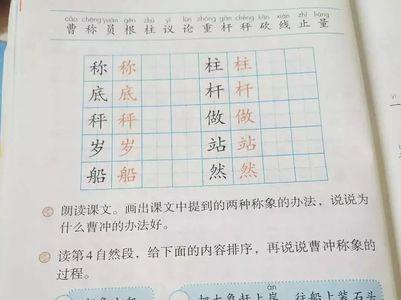 cáo chēng yuán gēn zhù yì lùn zhòng gǎn chèng kǎn xiàn zhǐ liàng
曹 称 员 根 柱 议 论 重 杆 秤 砍 线 止 量
称 称 柱 柱
底 底 杆 杆
秤 秤 做 做
岁 岁 站 站
船 船 然 然
朗读课文。画出课文中提到的两种称象的办法,说说为
什么曹冲的办法好。
读第4自然段,给下面的内容排序,再说说曹冲称象的
过程。
àn
把大象赶上岸 往船上装石头